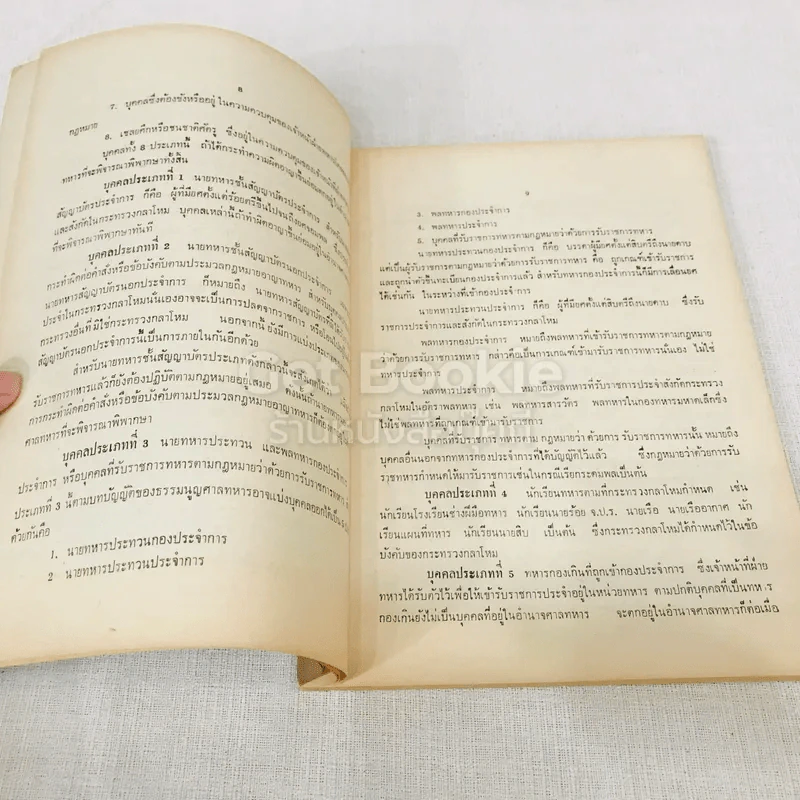 8
7. บุคคลซึ่งต้องขังหรืออยู่ในความควบคุมของเจ้าหน้าที่ฝ่ายทหาร
กฎหมาย
8. เชลยศึกหรือชนชาติศัตรู ซึ่งอยู่ในความควบคุมของเจ้าหน้าที่
บุคคลทั้ง 8 ประเภทนี้ ถ้าได้กระทำความผิดอาญาขึ้น
ทหารที่จะพิจารณาพิพากษาทั้งสิ้น
บุคคลประเภทที่ 1 นายทหารชั้นสัญญาบัตรประจำการ
สัญญาบัตรประจำการ ก็คือ ผู้ที่มียศตั้งแต่ร้อยตรีขึ้นไปจนถึงยศจอมพล
และสังกัดในกระทรวงกลาโหม บุคคลเหล่านี้ถ้าทำผิดอาญาขึ้นก็ต้องอยู่ใน
ที่จะพิจารณาพิพากษาทันที
บุคคลประเภทที่ 2 นายทหารชั้นสัญญาบัตรนอกประจำการ
การกระทำผิดต่อคำสั่งหรือข้อบังคับตามประมวลกฎหมายอาญาทหาร สำหรับบุคคล
นายทหารสัญญาบัตรนอกประจำการ ก็หมายถึง นายทหารสัญญาบัตรที่มิได้
ประจำในกระทรวงกลาโหมนั่นเองอาจจะเป็นการปลดจากราชการ หรือโอนไป
กระทรวงอื่นที่มิใช่กระทรวงกลาโหม นอกจากนี้ยังมีการแบ่งประเภท
สัญญาบัตรนอกประจำการนี้เป็นการภายในกันอีกด้วย
สำหรับนายทหารชั้นสัญญาบัตรประเภทดังกล่าวนี้จะสังเกตได้ว่า
รับราชการทหารแล้วก็ยังต้องปฏิบัติตามกฎหมายอยู่เสมอ ดังนั้นถ้านายทหาร
การกระทำผิดต่อคำสั่งหรือข้อบังคับตามประมวลกฎหมายอาญาทหารก็ต้อง
ศาลทหารที่จะพิจารณาพิพากษา
บุคคลประเภทที่ 3 นายทหารประทวน และพลทหารกองประจำการ
ประจำการ หรือบุคคลที่รับราชการทหารตามกฎหมายว่าด้วยการรับราชการทหาร
ประเภทที่ 3 นี้ตามบทบัญญัติของธรรมนูญศาลทหารอาจแบ่งบุคคลออกได้เป็น 5
ด้วยกันคือ
1. นายทหารประทวนกองประจำการ
2 นายทหารประทวนประจำการ
9
3. พลทหารกองประจำการ
4. พลทหารประจำการ
5. บุคคลที่รับราชการทหารตามกฎหมายว่าด้วยการรับราชการทหาร
นายทหารประทวนกองประจำการ ก็คือ บรรดาผู้มียศตั้งแต่สิบตรีถึงนายดาบ
แต่เป็นผู้รับราชการตามกฎหมายว่าด้วยการรับราชการทหาร คือ ถูกเกณฑ์เข้ารับราชการ
และถูกนำตัวขึ้นทะเบียนกองประจำการแล้ว สำหรับทหารกองประจำการนี้ก็มีการเลื่อนยศ
ได้เช่นกัน ในระหว่างที่เข้ากองประจำการ
นายทหารประทวนประจำการ ก็คือ ผู้ที่มียศตั้งแต่สิบตรีถึงนายดาบ ซึ่งรับ
ราชการประจำการและสังกัดในกระทรวงกลาโหม
พลทหารกองประจำการ หมายถึงพลทหารที่เข้ารับราชการทหารตามกฎหมาย
ว่าด้วยการรับราชการทหาร กล่าวคือเป็นการเกณฑ์เข้ามารับราชการทหารนั่นเอง ไม่ใช่
ทหารประจำการ
พลทหารประจำการ หมายถึงพลทหารที่รับราชการประจำสังกัดกระทรวง
กลาโหมในอัตราพลทหาร เช่น พลทหารสารวัตร พลทหารในกองทหารมหาดเล็กซึ่ง
ไม่ใช่พลทหารที่ถูกเกณฑ์เข้ามารับราชการ
บุคคลที่รับราชการทหารตามกฎหมายว่าด้วยการรับราชการทหารนั้น หมายถึง
บุคคลอื่นนอกจากทหารกองประจำการที่ได้บัญญัติไว้แล้ว ซึ่งกฎหมายว่าด้วยการรับ
ราชทหารกำหนดให้มารับราชการเช่นในกรณีเรียกระดมพลเป็นต้น
บุคคลประเภทที่ 4 นักเรียนทหารตามที่กระทรวงกลาโหมกำหนด เช่น
นักเรียนโรงเรียนช่างฝีมือทหาร นักเรียนนายร้อย จ.ป.ร. นายเรือ นายเรืออากาศ นัก
เรียนแผนที่ทหาร นักเรียนนายสิบ เป็นต้น ซึ่งกระทรวงกลาโหมได้กำหนดไว้ในข้อ
บังคับของกระทรวงกลาโหม
บุคคลประเภทที่ 5 ทหารกองเกินที่ถูกเข้ากองประจำการ ซึ่งเจ้าหน้าที่ฝ่าย
ทหารได้รับตัวไว้เพื่อให้เข้ารับราชการประจำอยู่ในหน่วยทหาร ตามปกติบุคคลที่เป็นทหาร
กองเกินยังไม่เป็นบุคคลที่อยู่ในอำนาจศาลทหาร จะตกอยู่ในอำนาจศาลทหารก็ต่อเมื่อ